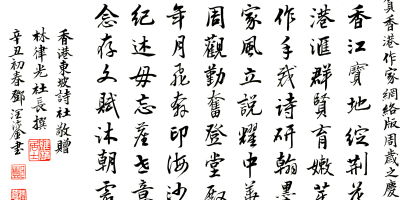 賀香港作家網絡版周歲之慶
香江寶地綻荊花
港滙群賢育嫩芽
作手裁詩研翰墨
家風立說耀中華
周觀勤奮登堂殿
年月飛奔印海沙
紀述毋忘意
念存文賦沐朝霞
香港東坡詩社敬贈
林律光社長撰
辛丑初春鄧鎏書